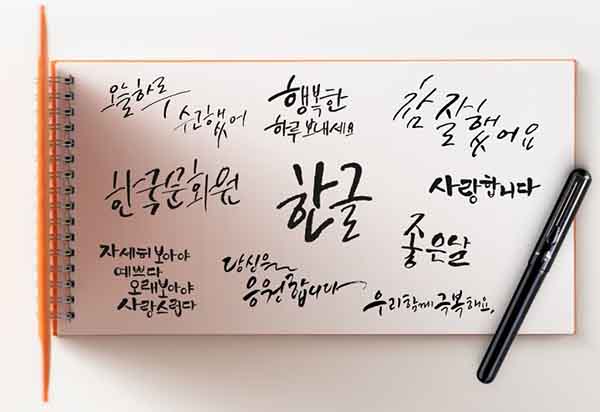 오늘하루
수고했어
행복한
하루 보내세요
참
잘했어요
한국문화원
한글
사랑합니다
좋은날
자세히 보아야
예쁘다
오래 보아야
사랑스럽다
당신을
응원합니다
우리함께 극복해요.